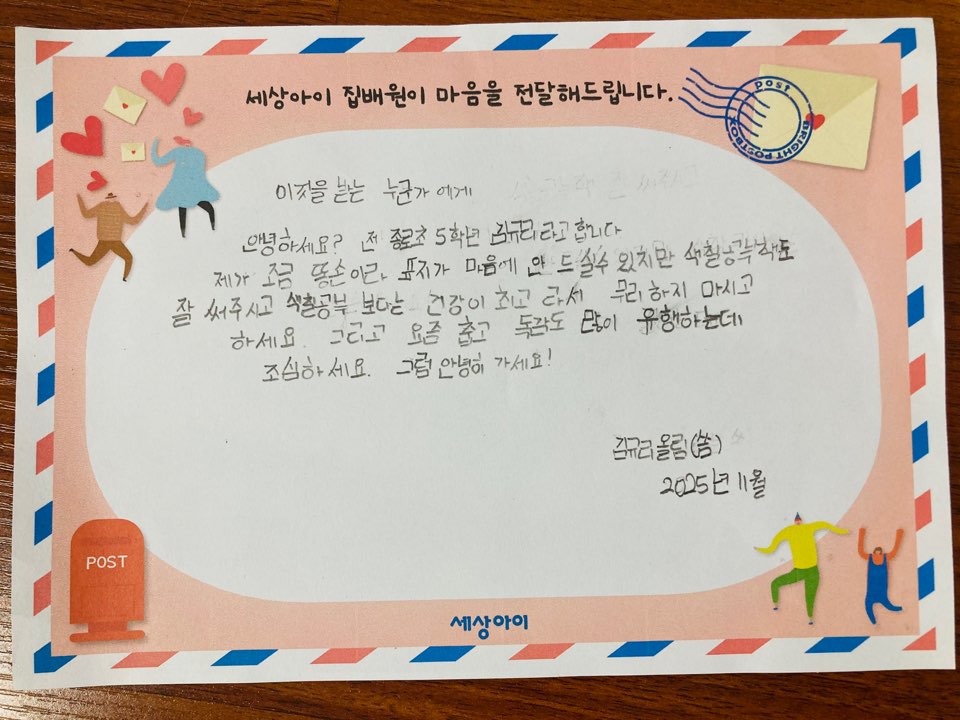 세상아이 집배원이 마음을 전달해드립니다.
post
BRIGHT POSTBOX
이것을 받는 누군가에게
안녕하세요? 전 종로초 5학년 김규리라고 합니다
제가 조금 똥손이라 표지가 마음에 안 드실수 있지만 색칠공부책도
잘 써주시고 색칠공부 보다는 건강이 최고 무리하지 마시고
하세요. 그리고 요즘 춥고 독감도 많이 유행하는데
조심하세요. 그럼 안녕히 가세요!
김규리 올림(씀)
2025년 11월
POST
세상아이